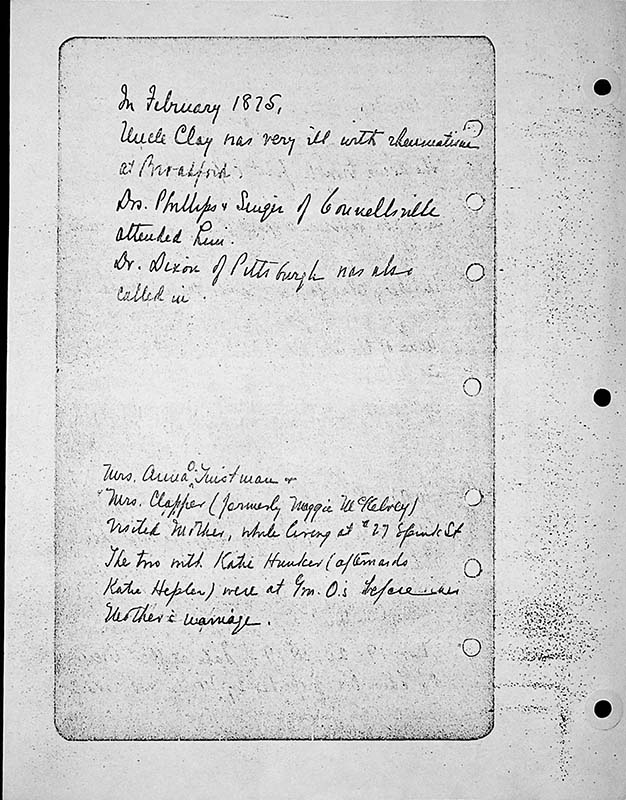 In February 1875,
Uncle Clay was very ill with rheumatism
at Broadford.
Drs. Phillips & Singer of Connellsville
attended him.
Dr. Dixon of Pittsburgh was also
called in.
Mrs. Anna O.
Mrs. Clapper (formerly Maggie McKelvey)
visited Mother, while living at #27 St
The two with Katie Hunker (afterwards
Katie Hepler) were at Gm. O.'s before
Mother's marriage.